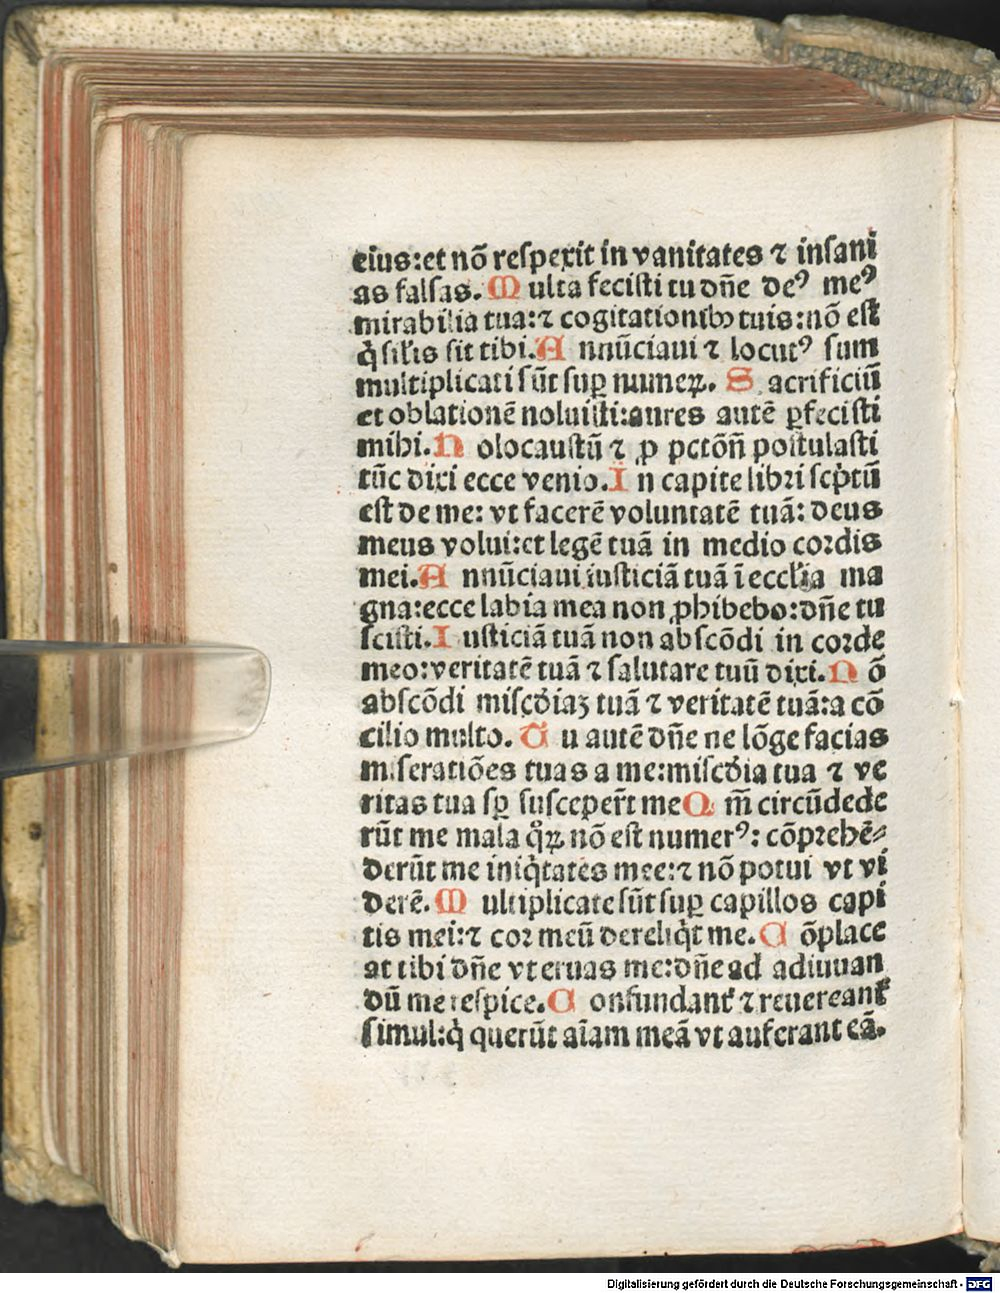 eius:et nō respexit in vanitates ⁊ insani
as falsas. M ulta fecisti tu dñe deꝰ meꝰ
mirabilia tua:⁊ cogitationibꝰ tuis:nō est
q̇ silis sit tibi. A nnūciaui ⁊ locutꝰ sum
multiplicati sūt suꝑ numeꝝ. S acrificiū
et oblationē noluisti:aures autē ꝑfecisti
mihi. H olocaustū ⁊ ꝓ pctōñ postulasti
tūc dixi ecce venio. I n capite libri scṗtū
est de me: vt facerē voluntatē tuā: deus
meus volui:et legē tuā in medio cordis
mei. A nnūciaui iusticiā tuā ī ecclia ma
gna:ecce labia mea non ꝓhibebo:dñe tu
scisti. I usticiā tuā non abscōdi in corde
meo:veritatē tuā ⁊ salutare tuū dixi. N ō
abscōdi misc̄diaꝫ tuā ⁊ veritatē tuā:a cō
cilio multo. T u autē dñe ne lōge facias
miseratiōes tuas a me:misc̄dia tua ⁊ ve
ritas tua sꝑ susceper̄t me Q m̄ circūdede
rūt me mala qͦꝝ nō est numerꝰ: cōprehē⸗
derūt me iniq̇tates mee:⁊ nō potui vt vi
derē. M ultiplicate sūt suꝑ capillos capi
tis mei:⁊ cor meū dereliq̇t me. C ōplace
at tibi dñe vt eruas me:dñe ad adiuuan
dū me respice. C onfundant᷑ ⁊ reuereant᷑
simul:q̇ querūt aīam meā vt auferant eā.
Digitalisierung gefördert durch die Deutsche Forschungsgemeinschaft - DFG